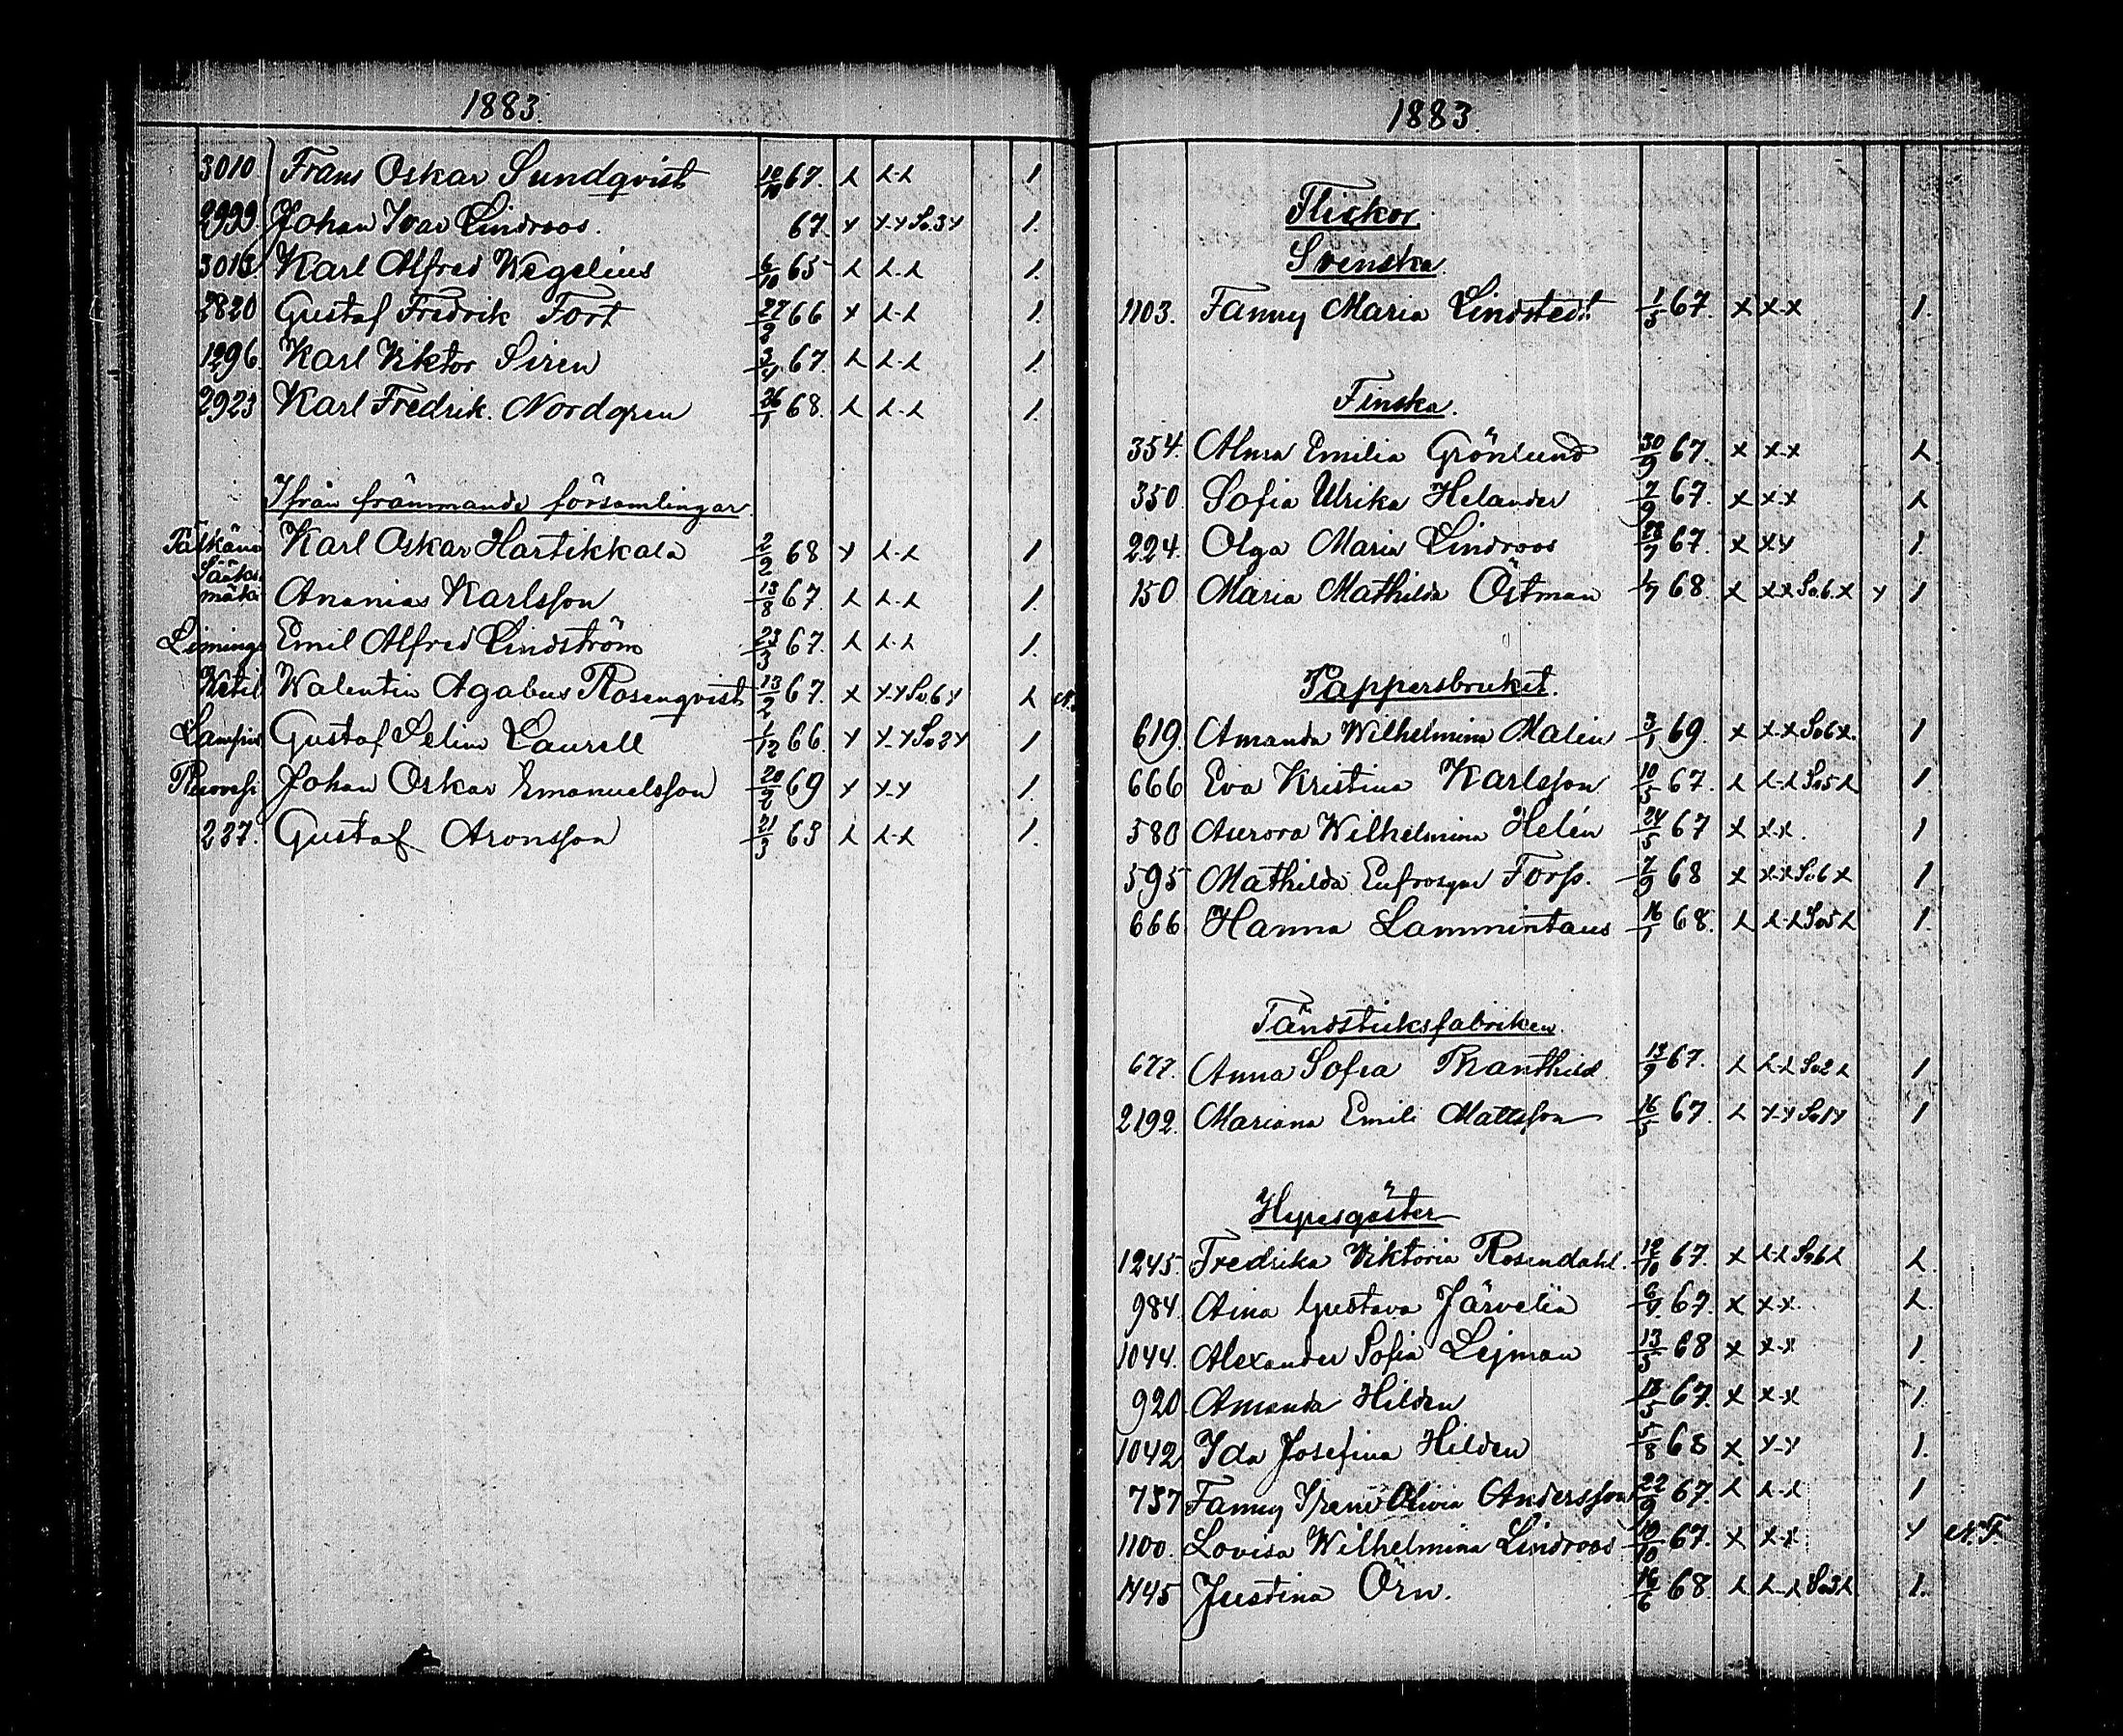 1883.
3010 Frans Oskar Sundqvist 10/10 67. λ λ-λ 1.
2999. Johan Ivar Lindroos. 67. x x-x Sv.3x 1.
3013 Karl Alfred Wegelius 6/10 65 λ λ-λ 1.
2820 Gustaf Fredrik Fort 27/8 66 x λ-λ 1.
1296. Karl Viktor Siren 3/4 67. λ λ-λ 1.
2923 Karl Fredrik. Nordgren 26/1 68. λ λ-λ 1.
Ifrån främmande församlingar.
Pälkäne Karl Oskar Hartikkala 2/2 68 x λ-λ 1
Sääks-
mäki Ananias Karlsson 13/8 67. λ λ-λ 1.
Emil Alfred Lindström 23/3 67. λ λ-λ 1.
Walentin Agabus Rosenqvist 13/2 67. λ x-x Sv.6x λ
Gustaf Selim Laurell 1/12 66. x x-x Sv2x 1
Ruovesi Johan Oskar Emanuelsson 20/2 69 x x-x 1.
237. Gustaf Aronsson 21/3 63 λ λ-λ 1.
1883.
Flickor
Svenska.
1103. Fanny Maria Lindstedt 1/5 67. x x-x 1.
Finska.
354. Alma Emilia Grönlund 30/9 67. x x-x λ
350 Sofia Ulrika Helander 7/9 67. x x-x λ
224. Olga Maria Lindroos 28/7 67. x xx 1.
150 Maria Mathilda Östman 1/7 68. x x-x Sv6.x x 1
Pappersbruket.
619. Amanda Wilhelmina Malin 3/1 69. x x-x Sv6x. 1
666 Eva Kristina Karlsson 10/5 67. λ λ-λ Sv5λ 1.
580 Aurora Wilhelmina Helén 24/5 67 x x-x. 1
595 Mathilda Eufrosyne Forss. 7/9 68 x x-x Sv6x 1
666 Hanna Lammintaus 16/1 68. λ λ-λ Sv5λ 1.
Tändsticksfabriken.
677. Anna Sofia 13/9 67. λ λ-λ Sv2λ 1
2192. Mariana Emili Mattsson 16/5 67. λ x-x Sv1x 1
Hyresgäster
1245. Fredrika Viktoria Rosendahl. 12/10 67. x λ-λ Sv6λ λ.
984. Aina Gustava Järveliä 6/7 67. x x-x. λ.
1044. Alexander Sofia Lejman 13/5 68 x x-x 1.
920. Amanda Hilden 13/5 67. x x-x 1.
1042 Ida Josefina Hilden 5/8 68 x x-x 1.
757 Fanny Irene Olivia Andersson 22/9 67. λ λ-λ 1
1100. Lovisa Wilhelmina Lindroos 10/10 67. x x-x x N.F.
1445 Justina Örn. 16/6 68. λ λ-λ Sv3λ 1.